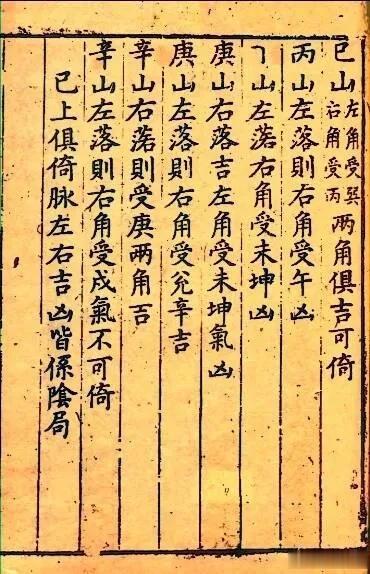 巳山左角受巽右角受丙兩角俱吉可倚
丙山左落則右角受午凶
丁山左落右角受未坤凶
庚山右落吉左角受未坤氣凶
庚山左落則右角受兊辛吉
辛山右落則受庚兩角吉
辛山左落則右角受戌氣不可倚
已上俱倚脉左右吉凶皆係陰局